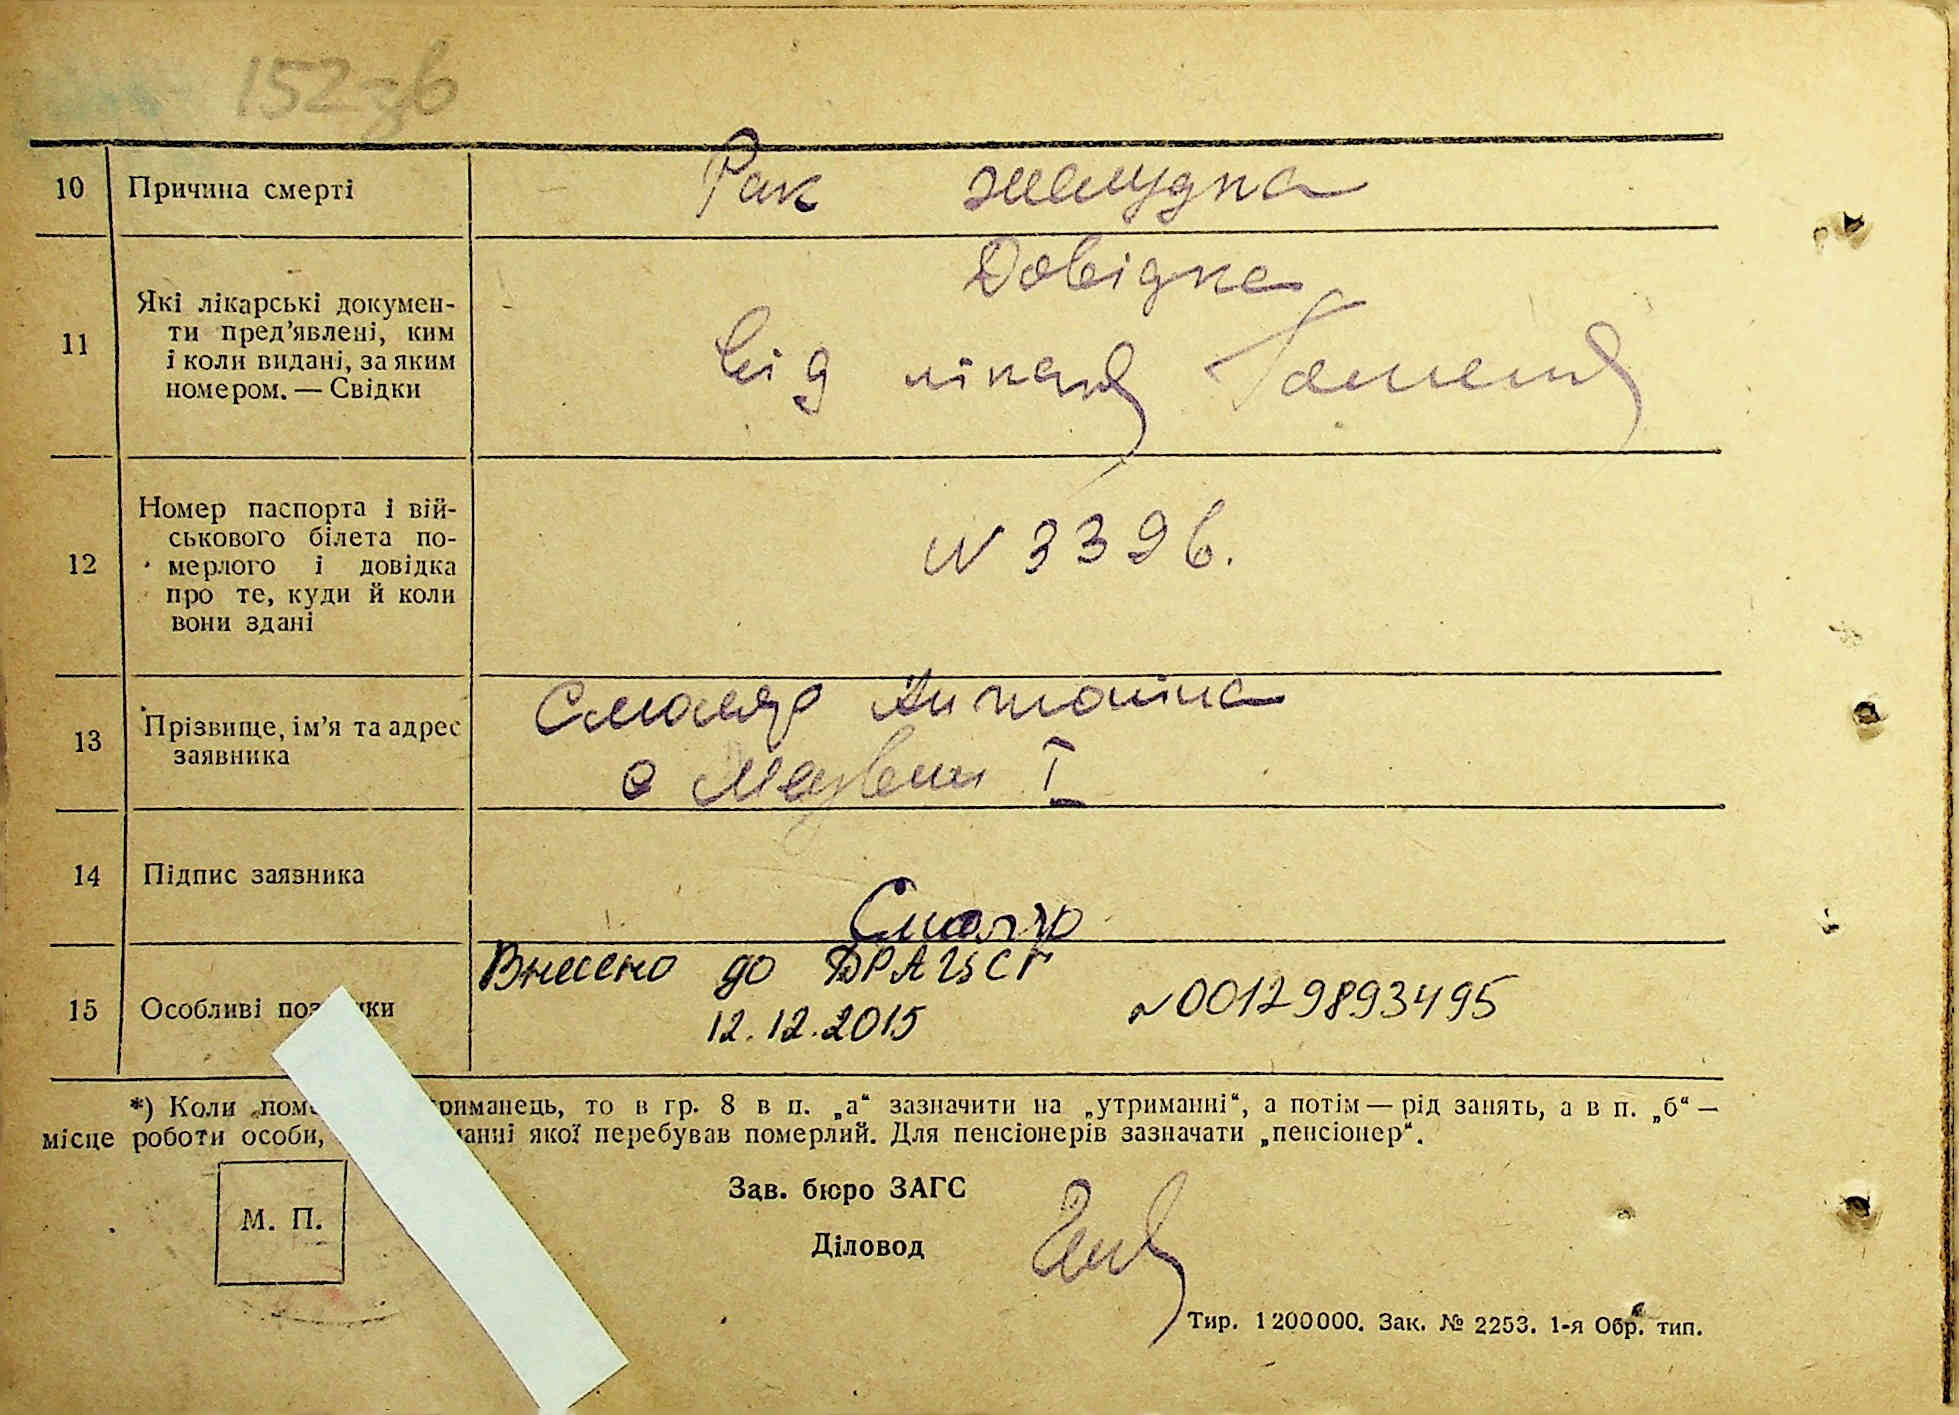 152 зв
10 Причина смерті Рак желудка
11 Які лікарські докумен-
ти пред'явлені, ким
і коли видані, за яким
номером. — Свідки
Довідка
від лікаря
12 Номер паспорта і вій-
ськового білета по-
мерлого і довідка
про те, куди й коли
вони здані
N 3396.
13 Прізвище, ім'я та адрес
заявника
Смоляр Антоніна
с
I
14 Підпис заявника Смоляр
15 Особливі поз ки
Внесено до ДРАЦСГ
12.12.2015 N00129893495
*) Коли „пом риманець, то в гр. 8 в п. „а“ зазначити на „утриманні“, а потім — рід занять, а в п. „б“ —
місце роботи особи, анні якої перебував померлий. Для пенсіонерів зазначати „пенсіонер“.
М. П.
Зав. бюро ЗАГС
Діловод
Тир. 1200000. Зак. № 2253. 1-я Обр. тип.